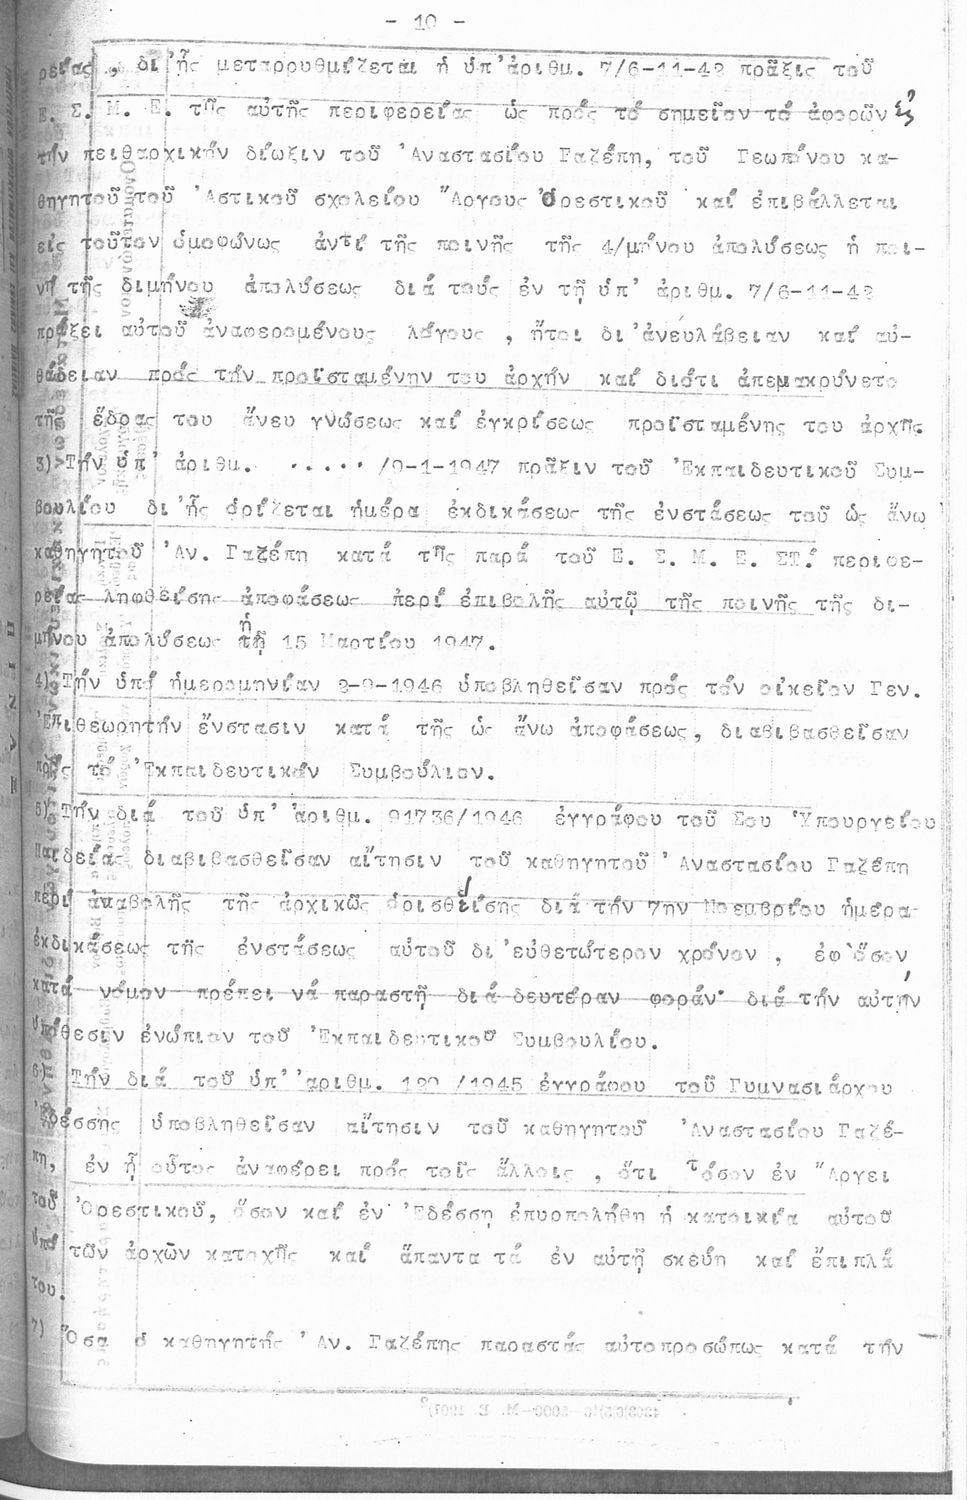 - 10 -
ρείας , δι'ἧς μεταρρυθμίζεται ἡ ὑπ'ἀριθμ. 7/6-11-42 πρᾶξις τοῦ
Ε. Σ. Μ. Ε. τῆς αὐτῆς περιφερείας ὡς πρός τό σημεῖον τό ἀφορῶν εἰς
τήν πειθαρχικήν δίωξιν τοῦ 'Αναστασίου Γαζέπη, τοῦ Γεωπόνου κα-
θηγητοῦ τοῦ 'Αστικοῦ σχολείου "Αργους Ὀρεστικοῦ καί ἐπιβάλλεται
εἰς τοῦτον ὁμοφώνως ἀντί τῆς ποινῆς τῆς 4/μήνου ἀπολύσεως ἡ ποι-
νή τῆς διμήνου ἀπολύσεως διά τούς ἐν τῇ ὑπ' ἀριθμ. 7/6-11-42
πράξει αὐτοῦ ἀναφερομένους λόγους , ἤτοι δι'ἀνευλάβειαν καί αὐ-
θάδειαν πρός τήν προϊσταμένην του ἀρχήν καί διότι ἀπεμακρύνετο
τῆς ἕδρας του ἄνευ γνώσεως καί ἐγκρίσεως προϊσταμένης του ἀρχῆς.
3) Τήν ὑπ' ἀριθμ. ..... /9-1-1947 πρᾶξιν τοῦ 'Εκπαιδευτικοῦ Συμ-
βουλίου δι'ἧς ὁρίζεται ἡμέρα ἐκδικάσεως τῆς ἐνστάσεως τοῦ ὡς ἄνω
καθηγητοῦ 'Αν. Γαζέπη κατά τῆς παρά τοῦ Ε. Σ. Μ. Ε. ΣΤ! περιφε-
ρείας ληφθείσης ἀποφάσεως περί ἐπιβολῆς αὐτῷ τῆς ποινῆς τῆς δι-
μήνου ἀπολύσεως ἡ τῇ 15 Μαρτίου 1947.
4) Τήν ὑπό ἡμερομηνίαν 2-9-1946 ὑποβληθεῖσαν πρός τόν οἰκεῖον Γεν.
'Επιθεωρητήν ἔνστασιν κατά τῆς ὡς ἄνω ἀποφάσεως, διαβιβασθεῖσαν
πρός τό 'Εκπαιδευτικόν Συμβούλιον.
5) Τήν διά τοῦ ὑπ' ἀριθμ. 91736/1946 ἐγγράφου τοῦ Σου Ὑπουργείου
Παιδείας διαβιβασθεῖσαν αἴτησιν τοῦ καθηγητοῦ 'Αναστασίου Γαζέπη
περί ἀναβολῆς τῆς ἀρχικῶς ὁρισθείσης διά τήν 7ην Νοεμβρίου ἡμέρα
ἐκδικάσεως τῆς ἐνστάσεως αὐτοῦ δι'εὐθετώτερον χρόνον , ἐφ'ὅσον
κατά νόμον πρέπει νά παραστῇ διά δευτέραν φοράν διά τήν αὐτήν
ὑπόθεσιν ἐνώπιον τοῦ 'Εκπαιδευτικοῦ Συμβουλίου.
6) Τήν διά τοῦ ὑπ' ἀριθμ. 129 /1945 ἐγγράφου τοῦ Γυμνασιάρχου
'Εδέσσης ὑποβληθεῖσαν αἴτησιν τοῦ καθηγητοῦ 'Αναστασίου Γαζέ-
πη, ἐν ᾗ οὗτος ἀναφέρει πρός τοῖς ἄλλοις , ὅτι τόσον ἐν "Αργει
τοῦ 'Ορεστικοῦ, ὅσον καί ἐν 'Εδέσσῃ ἐπυρπολήθη ἡ κατοικία αὐτοῦ
ὑπό τῶν ἀρχῶν κατοχῆς καί ἅπαντα τά ἐν αὐτῇ σκεύη καί ἔπιπλά
του.
7) Ὅσα ὁ καθηγητής 'Αν. Γαζέπης παραστάς αὐτοπροσώπως κατά τήν